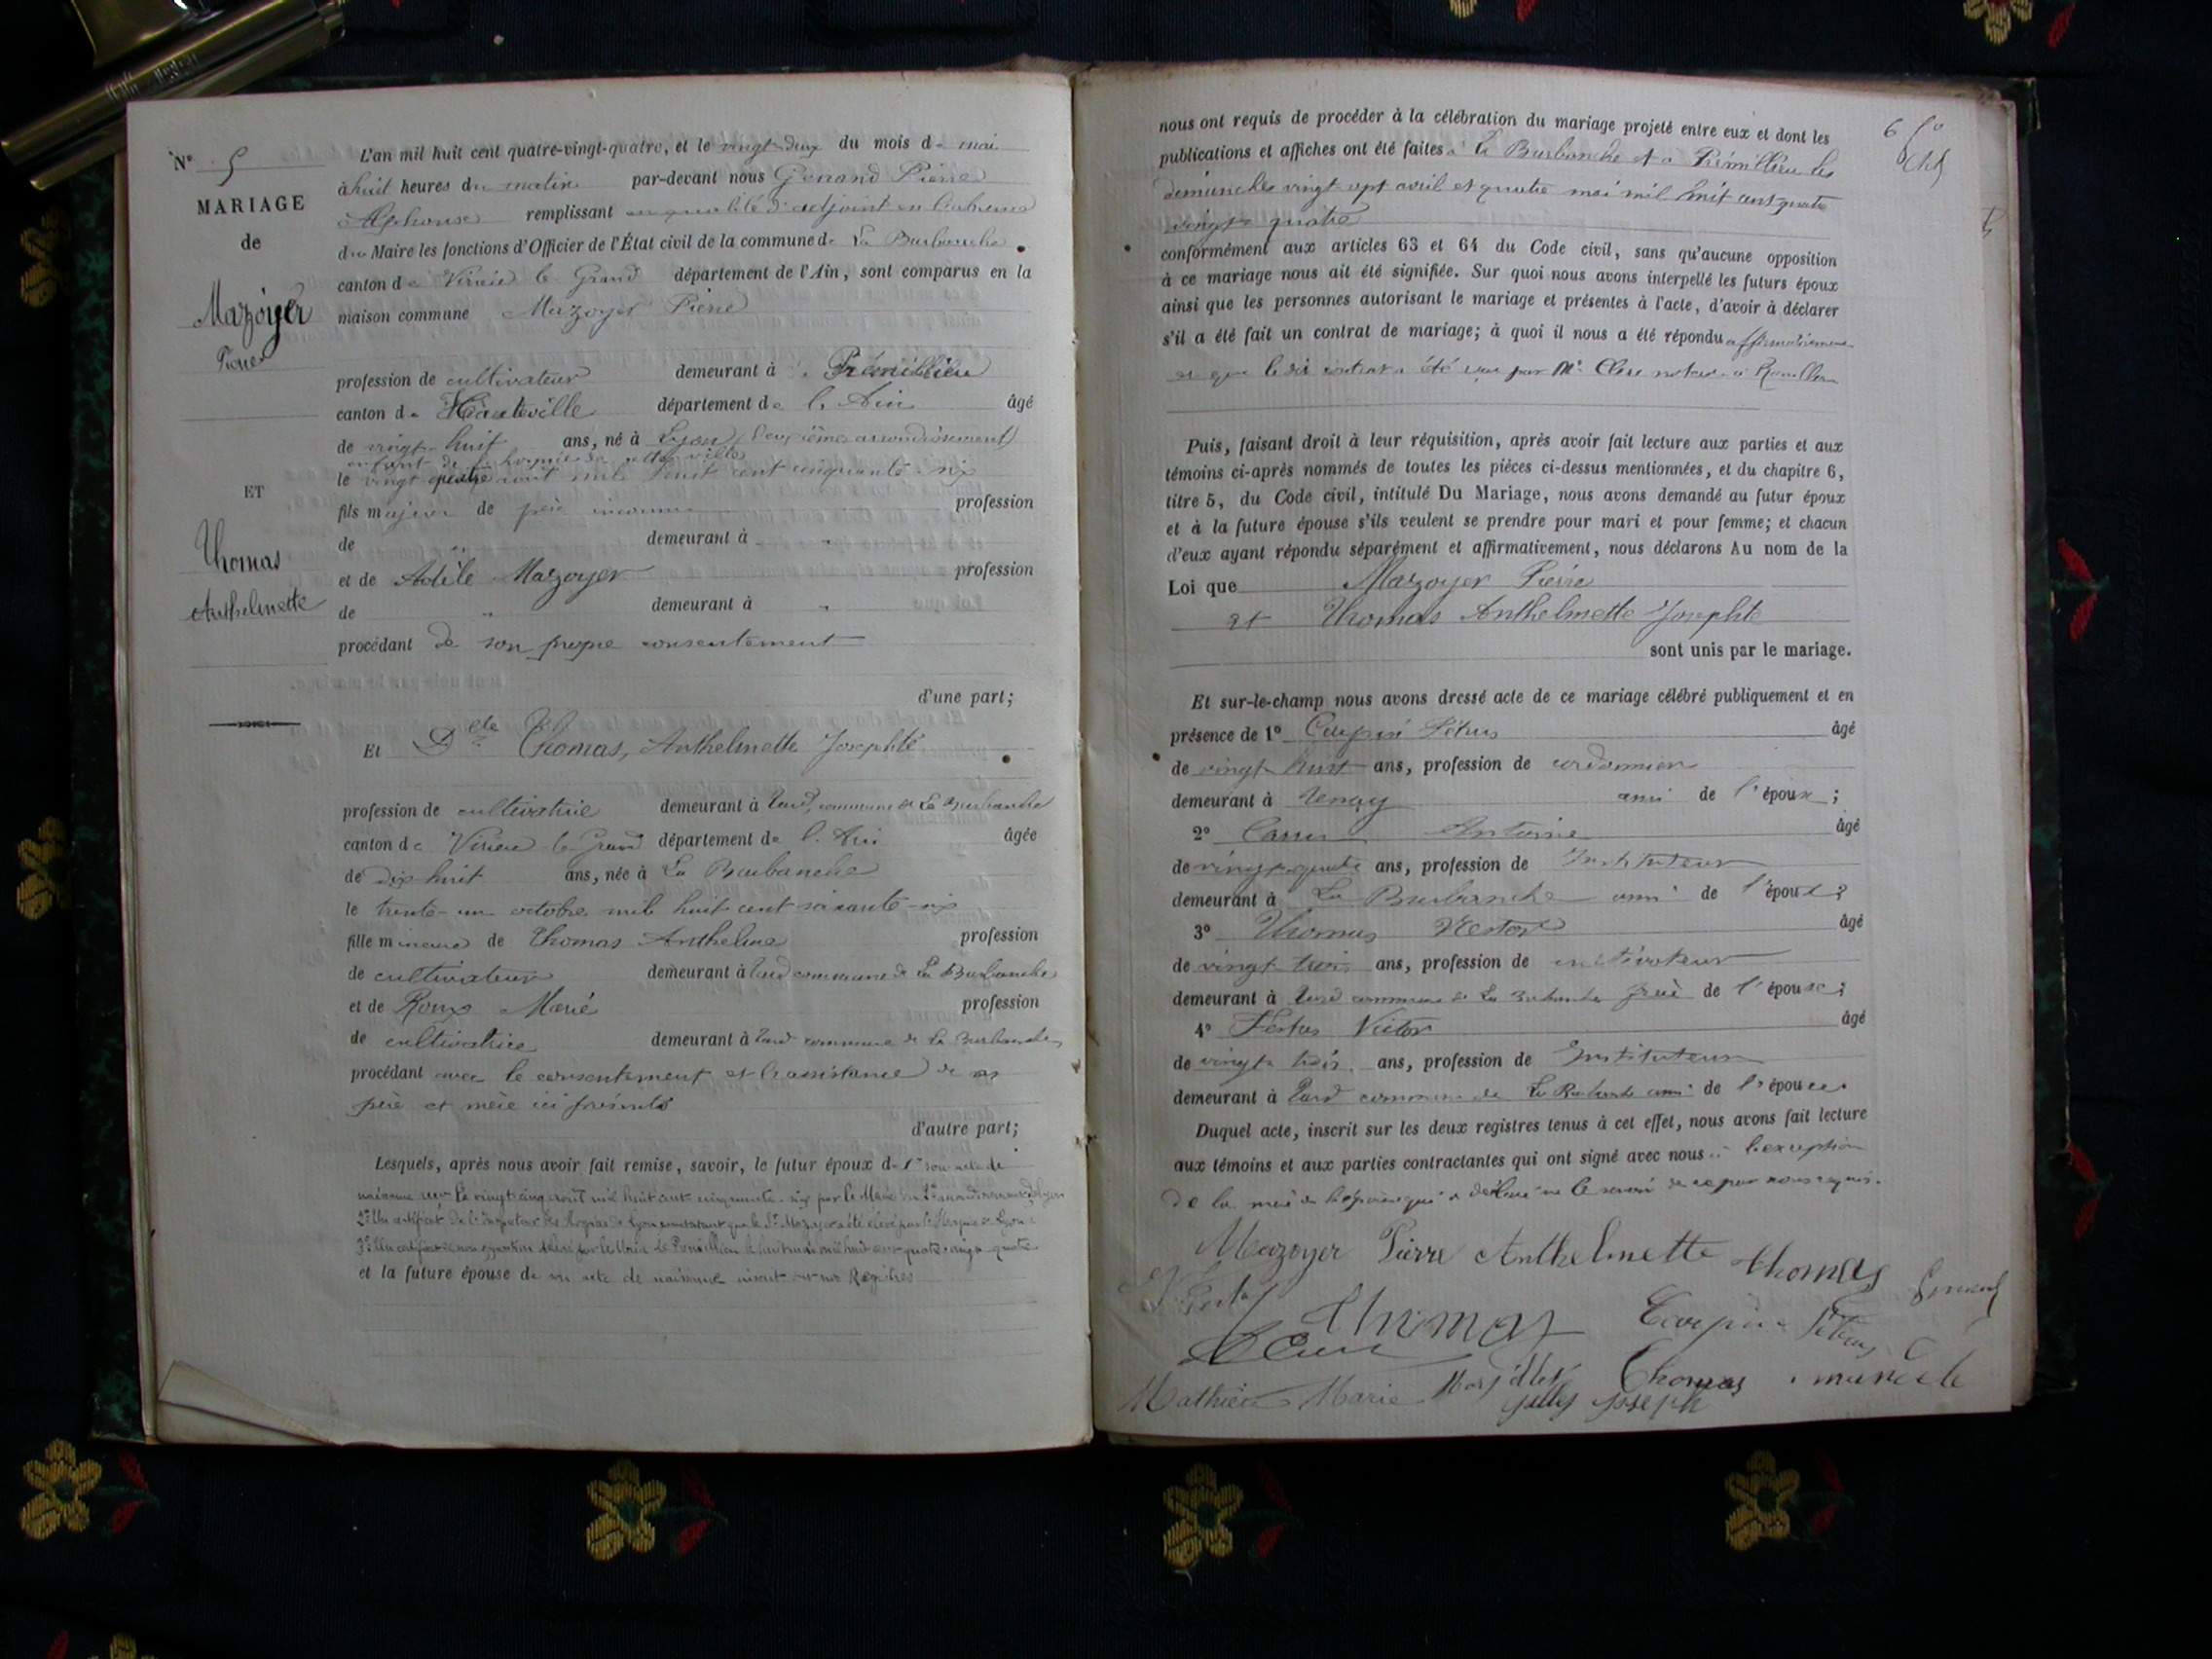 N° 5
MARIAGE
de
Mazoyer
Pierre
ET
Thomas
Anthelmette
L'an mil huit cent quatre-vingt-quatre, et le vingt-deux du mois de mai
à huit heures du matin par-devant nous Genand Pierre
Alphonse remplissant en qualité d'adjoint en l'absence
du Maire les fonctions d'Officier de l'État civil de la commune de La Burbanche
canton de Virieu le Grand département de l'Ain, sont comparus en la
maison commune Mazoyer Pierre
profession de cultivateur demeurant à Prémillieu
canton de Hauteville département de l'Ain âgé
de vingt-huit ans, né à Lyon (deuxième arrondissement)
enfant de l'hospice de cette ville
le vingt quatre août mil huit cent cinquante-six
fils majeur de père inconnu profession
de " demeurant à "
et de Adèle Mazoyer profession
de " demeurant à "
procédant de son propre consentement
d'une part;
Et Dlle Thomas, Anthelmette Josephte
profession de cultivatrice demeurant à Tard, commune de La Burbanche
canton de Virieu-le-Grand département de l'Ain âgée
de dix-huit ans, née à La Burbanche
le trente-un octobre mil huit cent soixante-six
fille mineure de Thomas Anthelme profession
de cultivateur demeurant à Tard commune de La Burbanche
et de Roux Marie profession
de cultivatrice demeurant à Tard commune de La Burbanche
procédant avec le consentement et l'assistance de ses
père et mère ici présents
d'autre part;
Lesquels, après nous avoir fait remise, savoir, le futur époux de 1° son acte de
naissance reçu le vingt cinq août mil huit cent cinquante-six par le Maire du 2e arrondissement de Lyon
2° Un certificat de l'Inspecteur des Hospices de Lyon constatant que le Sr Mazoyer a été élevé par l'Hospice de Lyon
3° Un certificat de non opposition délivré par le Maire de Prémillieu le huit mai mil huit cent quatre-vingt-quatre
et la future épouse de son acte de naissance inscrit sur nos Registres
6
nous ont requis de procéder à la célébration du mariage projeté entre eux et dont les
publications et affiches ont été faites à La Burbanche et à Prémillieu les
dimanches vingt-sept avril et quatre mai mil huit cent quatre
vingt-quatre
conformément aux articles 63 et 64 du Code civil, sans qu'aucune opposition
à ce mariage nous ait été signifiée. Sur quoi nous avons interpellé les futurs époux
ainsi que les personnes autorisant le mariage et présentes à l'acte, d'avoir à déclarer
s'il a été fait un contrat de mariage; à quoi il nous a été répondu affirmativement
et que le dit contrat a été reçu par Me notaire à
Puis, faisant droit à leur réquisition, après avoir fait lecture aux parties et aux
témoins ci-après nommés de toutes les pièces ci-dessus mentionnées, et du chapitre 6,
titre 5, du Code civil, intitulé Du Mariage, nous avons demandé au futur époux
et à la future épouse s'ils veulent se prendre pour mari et pour femme; et chacun
d'eux ayant répondu séparément et affirmativement, nous déclarons Au nom de la
Loi que Mazoyer Pierre
et Thomas Anthelmette Josephte
sont unis par le mariage.
Et sur-le-champ nous avons dressé acte de ce mariage célébré publiquement et en
présence de 1° âgé
de vingt huit ans, profession de cordonnier
demeurant à Tenay ami de l'époux;
2° Antoine âgé
de vingt-quatre ans, profession de Instituteur
demeurant à La Burbanche ami de l'époux;
3° Thomas Nestor âgé
de vingt-trois ans, profession de cultivateur
demeurant à Tard commune de La Burbanche frère de l'épouse;
4° Festas Victor âgé
de vingt-trois ans, profession de Instituteur
demeurant à Tard commune de La Burbanche ami de l'épouse.
Duquel acte, inscrit sur les deux registres tenus à cet effet, nous avons fait lecture
aux témoins et aux parties contractantes qui ont signé avec nous à l'exception
de la mère de l'épouse qui a déclaré ne le savoir de ce par nous requis.
Mazoyer Pierre Anthelmette thomas
Thomas
Mathieu Marie Thomas
Gilly Joseph